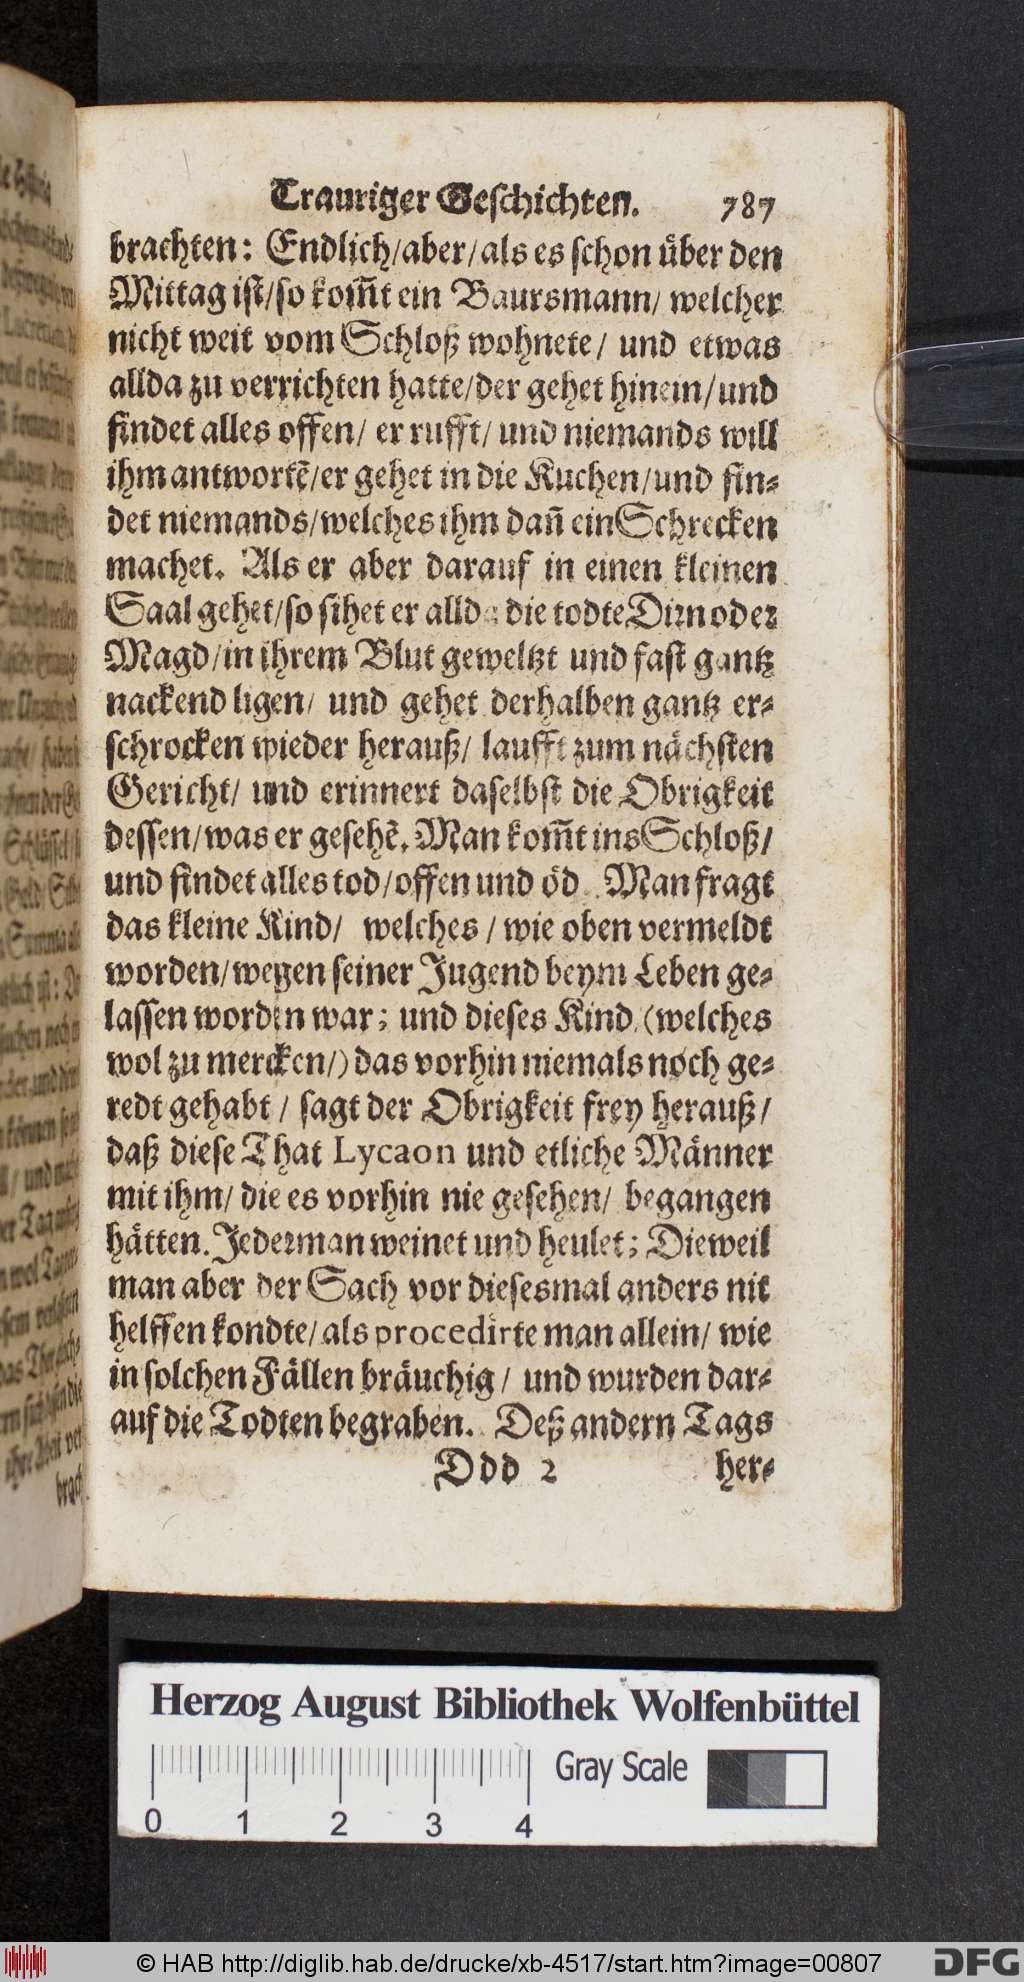 Trauriger Geschichten. 787
brachten: Endlich/aber/als es schon über den
Mittag ist/so kom̃t ein Baursmann/ welcher
nicht weit vom Schloß wohnete/ und etwas
allda zu verrichten hatte/der gehet hinein/und
findet alles offen/ er rufft/ und niemands will
ihm antwortẽ/er gehet in die Kuchen/und fin-
det niemands/welches ihm dañ ein Schrecken
machet. Als er aber darauf in einen kleinen
Saal gehet/so sihet er allda die todte Dirn oder
Magd/in ihrem Blut geweltzt und fast gantz
nackend ligen/ und gehet derhalben gantz er-
schrocken wieder herauß/ laufft zum nächsten
Gericht/ und erinnert daselbst die Obrigkeit
dessen/was er gesehẽ. Man kom̃t ins Schloß/
und findet alles tod/offen und öd. Man fragt
das kleine Kind/ welches / wie oben vermeldt
worden/wegen seiner Jugend beym Leben ge-
lassen worden war; und dieses Kind (welches
wol zu mercken/) das vorhin niemals noch ge-
redt gehabt / sagt der Obrigkeit frey herauß/
daß diese That Lycaon und etliche Männer
mit ihm/ die es vorhin nie gesehen/ begangen
hätten. Jederman weinet und heulet; Dieweil
man aber der Sach vor diesesmal anders nit
helffen kondte/als procedirte man allein/ wie
in solchen Fällen bräuchig / und wurden dar-
auf die Todten begraben. Deß andern Tags
Ddd 2 her-
Herzog August Bibliothek Wolfenbüttel
Gray Scale
0 1 2 3 4
© HAB http://diglib.hab.de/drucke/xb-4517/start.htm?image=00807
DFG